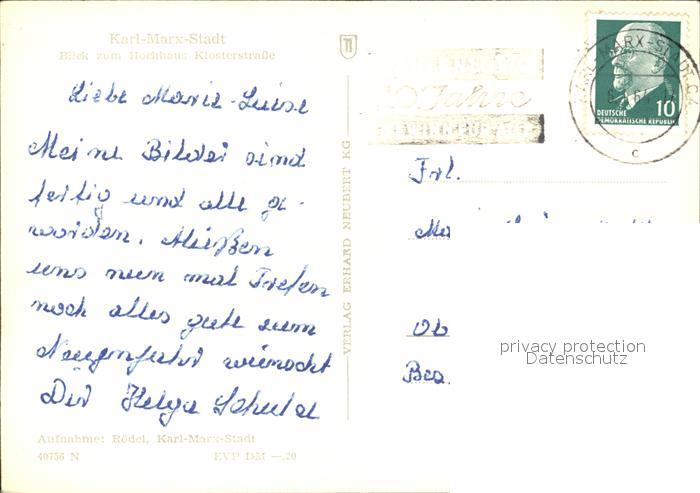 Karl-Marx-Stadt
Blick zum Hochhaus Klosterstraße
Liebe Marie-Luise
Meine Bilder sind
fertig und alle ge-
worden. Müßen
uns nun mal Trefen
noch alles gute zum
Neuenjahr wünscht
Dir Helga Schulz
Aufnahme: Rödel, Karl-Marx-Stadt
40756 N EVP DM —.20
VERLAG ERHARD NEUBERT KG
Jahre
KARL-MARX-STADT
c
DEUTSCHE
DEMOKRATISCHE REPUBLIK
10
Frl.
Ob
privacy protection
Datenschutz